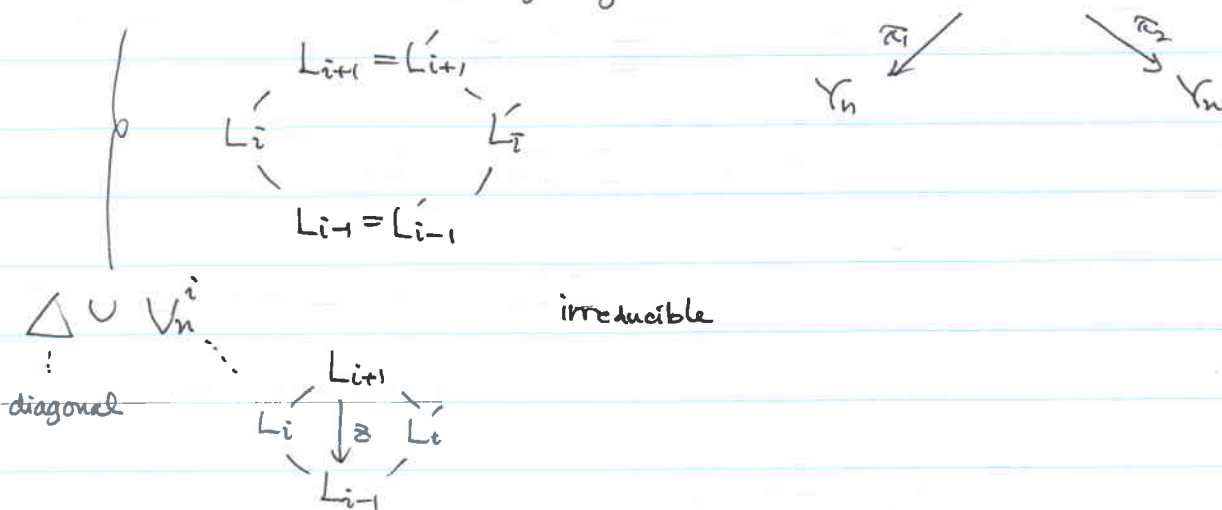 π₁ π₂
Yₙ Yₙ
Lᵢ₊₁ = L′ᵢ₊₁
Lᵢ L′ᵢ
Lᵢ₋₁ = L′ᵢ₋₁
△ ∪ Vₙⁱ irreducible
diagonal
Lᵢ₊₁
Lᵢ z L′ᵢ
Lᵢ₋₁